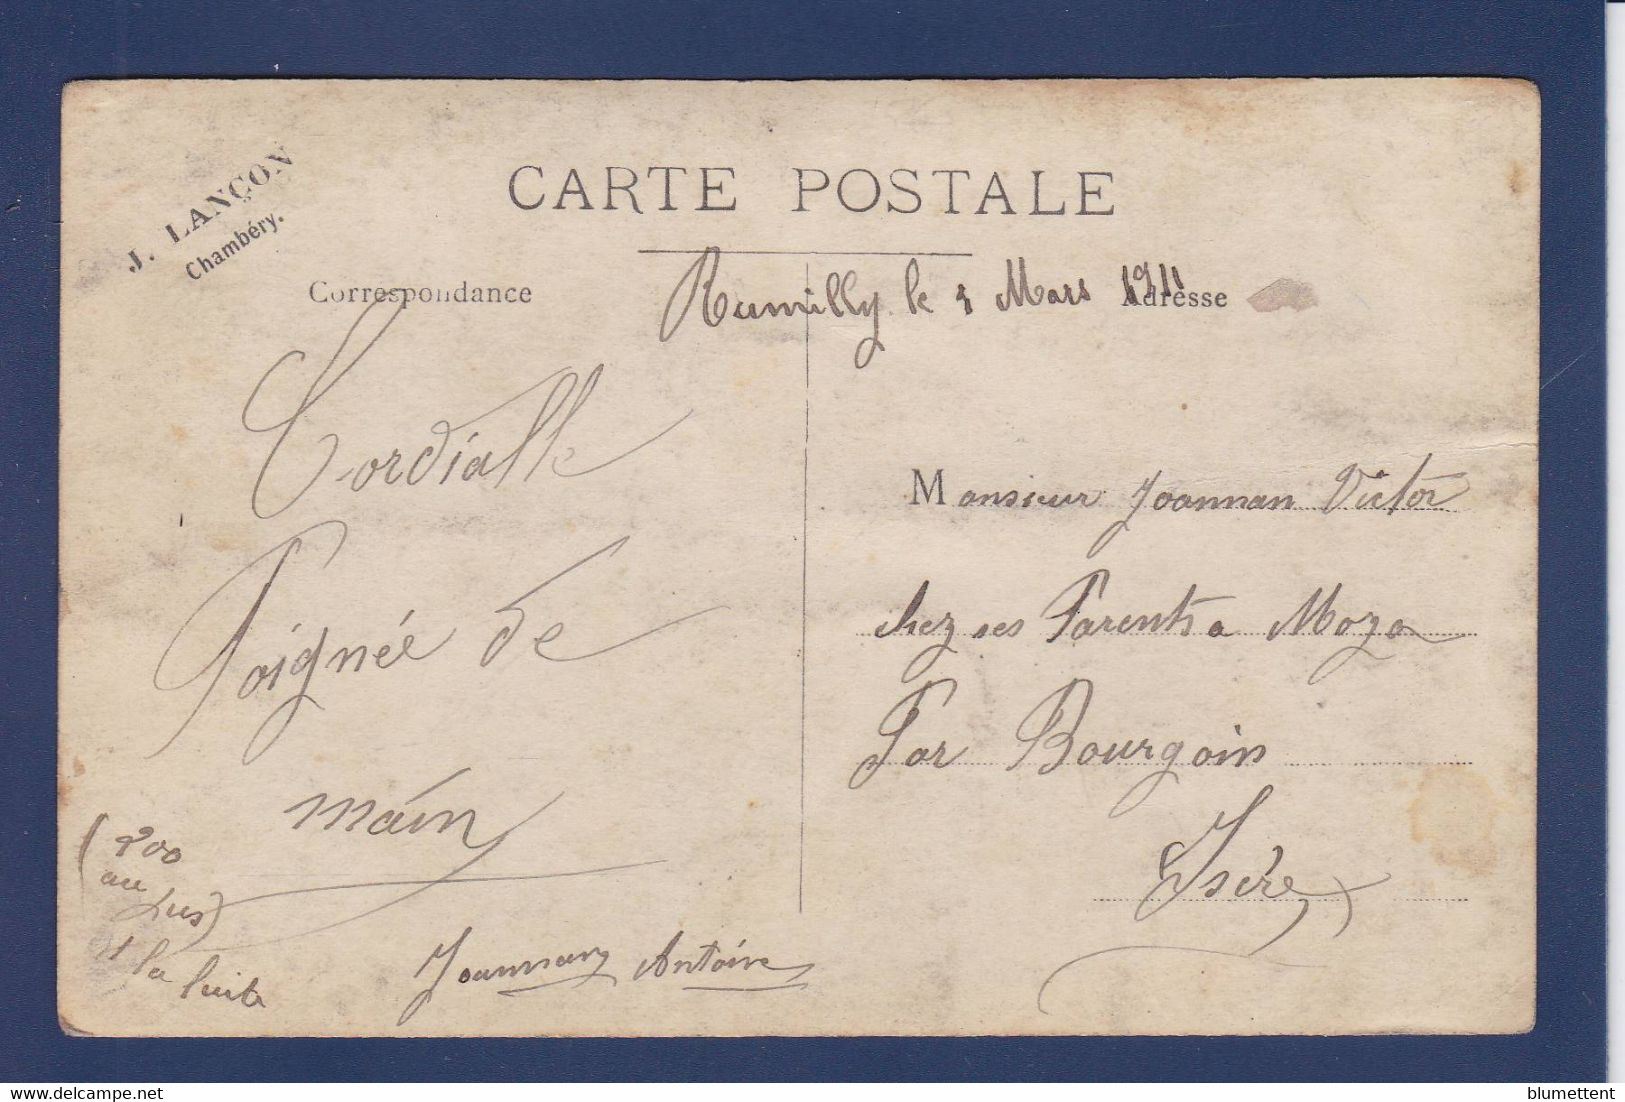 J. LANÇON
Chambéry.
CARTE POSTALE
Correspondance
Adresse
Rumilly le Mars 1911
Cordialle
Poignée de
main
(200
au Jus)
la suite
Joannan Antoine
Monsieur Joannan Victor
chez ses Parents a Moza
Par Bourgoin
Isère
blumettent